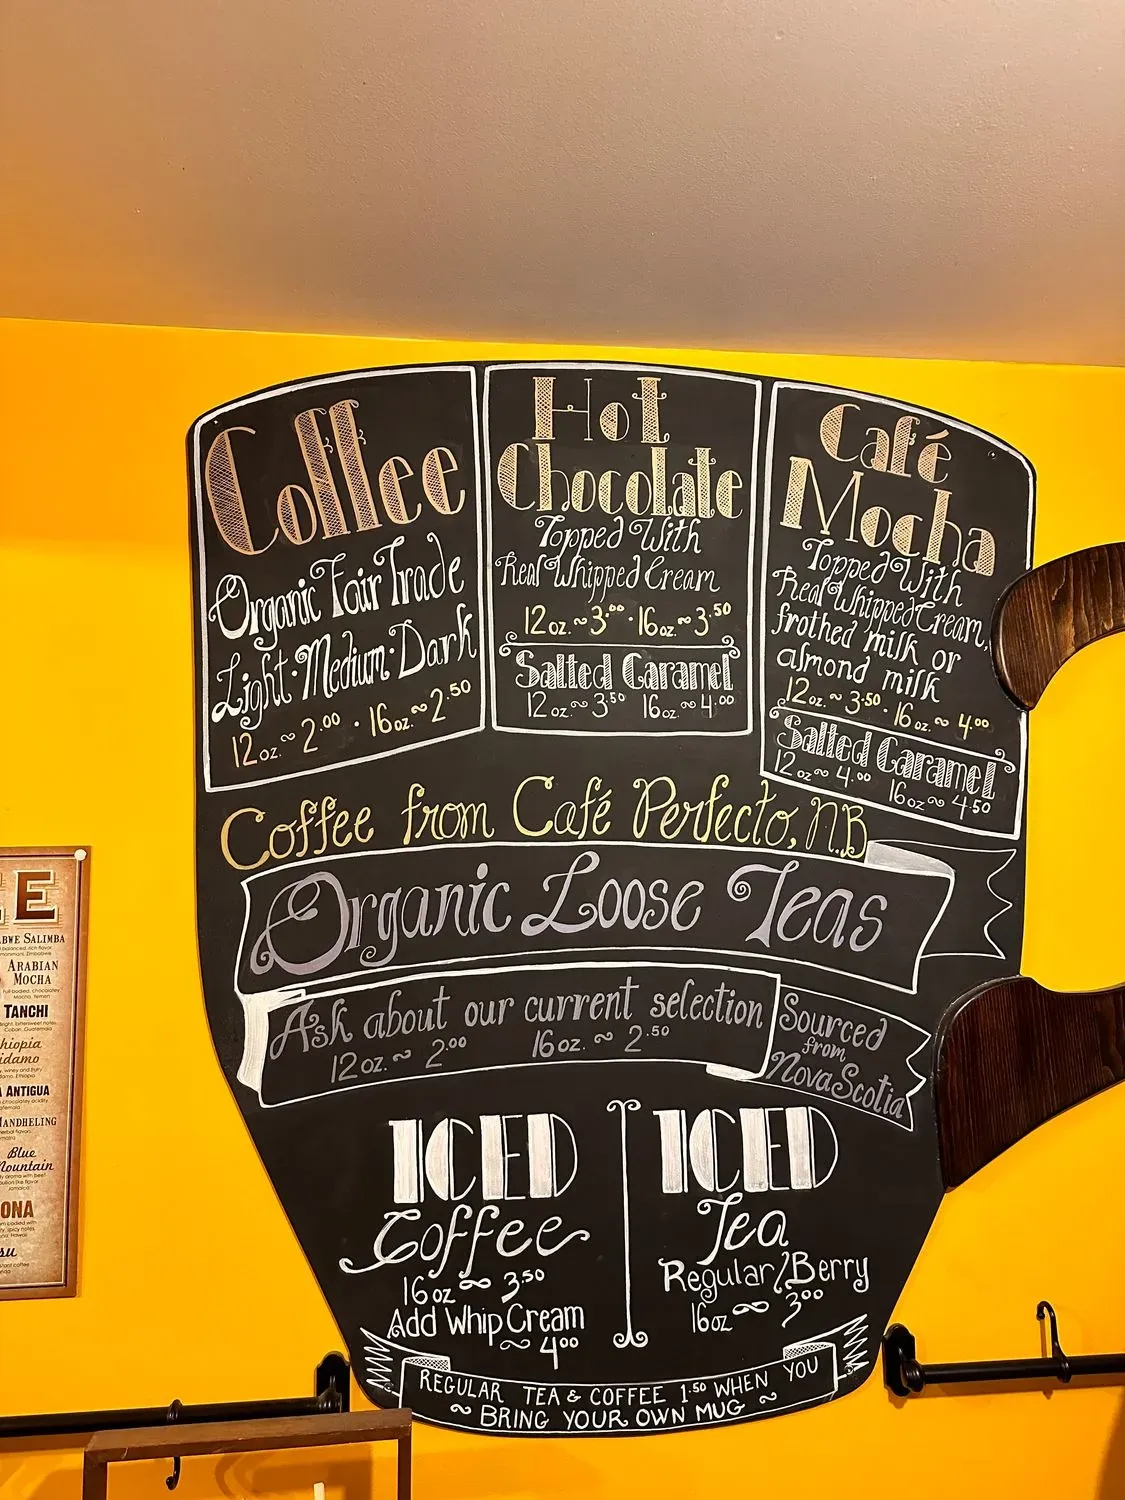 Coffee
Organic Fair Trade
Light · Medium · Dark
12 oz. ~ 2.00 · 16 oz. ~ 2.50
Hot
Chocolate
Topped With
Real Whipped Cream
12 oz. ~ 3.00 · 16 oz. ~ 3.50
Salted Caramel
12 oz. ~ 3.50 16 oz. ~ 4.00
Café
Mocha
Topped With
Real Whipped Cream,
frothed milk or
almond milk
12 oz. ~ 3.50 · 16 oz. ~ 4.00
Salted Caramel
12 oz ~ 4.00 16 oz ~ 4.50
Coffee from Café Perfecto, N.B
Organic Loose Teas
Ask about our current selection
12 oz. ~ 2.00 16 oz. ~ 2.50
Sourced
from
Nova Scotia
ICED
Coffee
16 oz ~ 3.50
Add Whip Cream
~ 4.00
ICED
Tea
Regular/Berry
16 oz ~ 3.00
REGULAR TEA & COFFEE 1.50 WHEN YOU
~ BRING YOUR OWN MUG ~
E
SALIMBA
ARABIAN
MOCHA
TANCHI
ANTIGUA
Blue